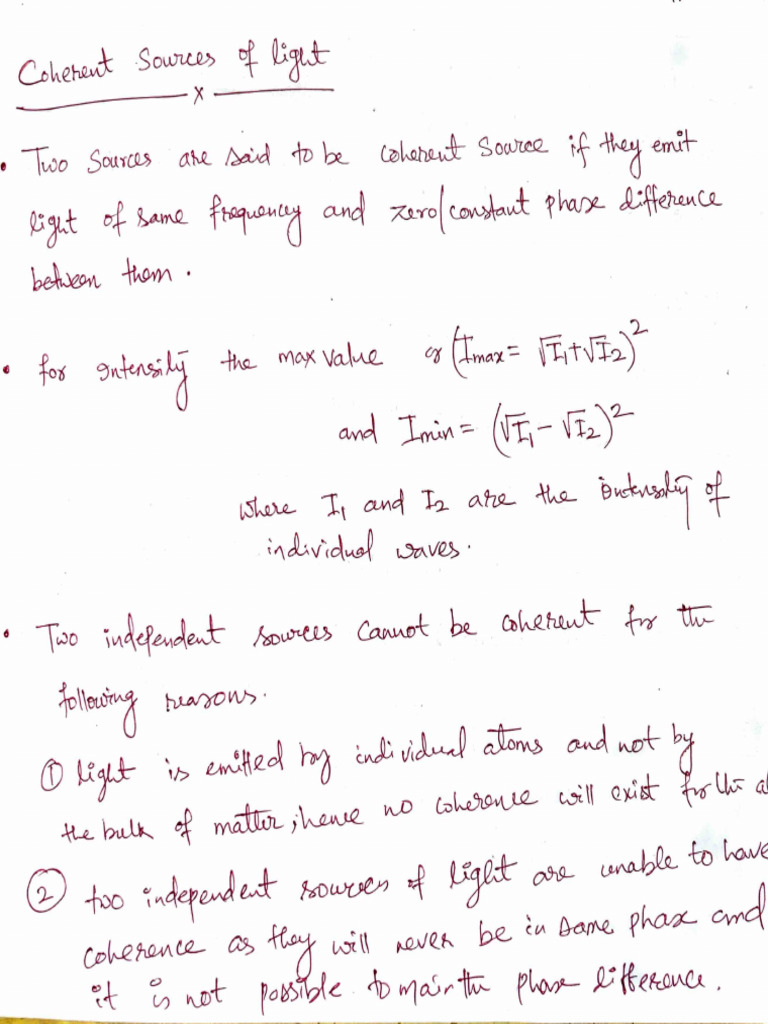 Coherent Sources of light
x
• Two Sources are said to be coherent Source if they emit
light of same frequency and zero/constant phase difference
between them.
• for intensity the max value or (Imax = √I1+√I2)²
and Imin = (√I1 - √I2)²
where I1 and I2 are the intensity of
individual waves.
• Two independent sources cannot be coherent for the
following reasons.
① light is emitted by individual atoms and not by
the bulk of matter, hence no coherence will exist for the
② too independent sources of light are unable to have
coherence as they will never be in same phase and
it is not possible to main the phase difference.